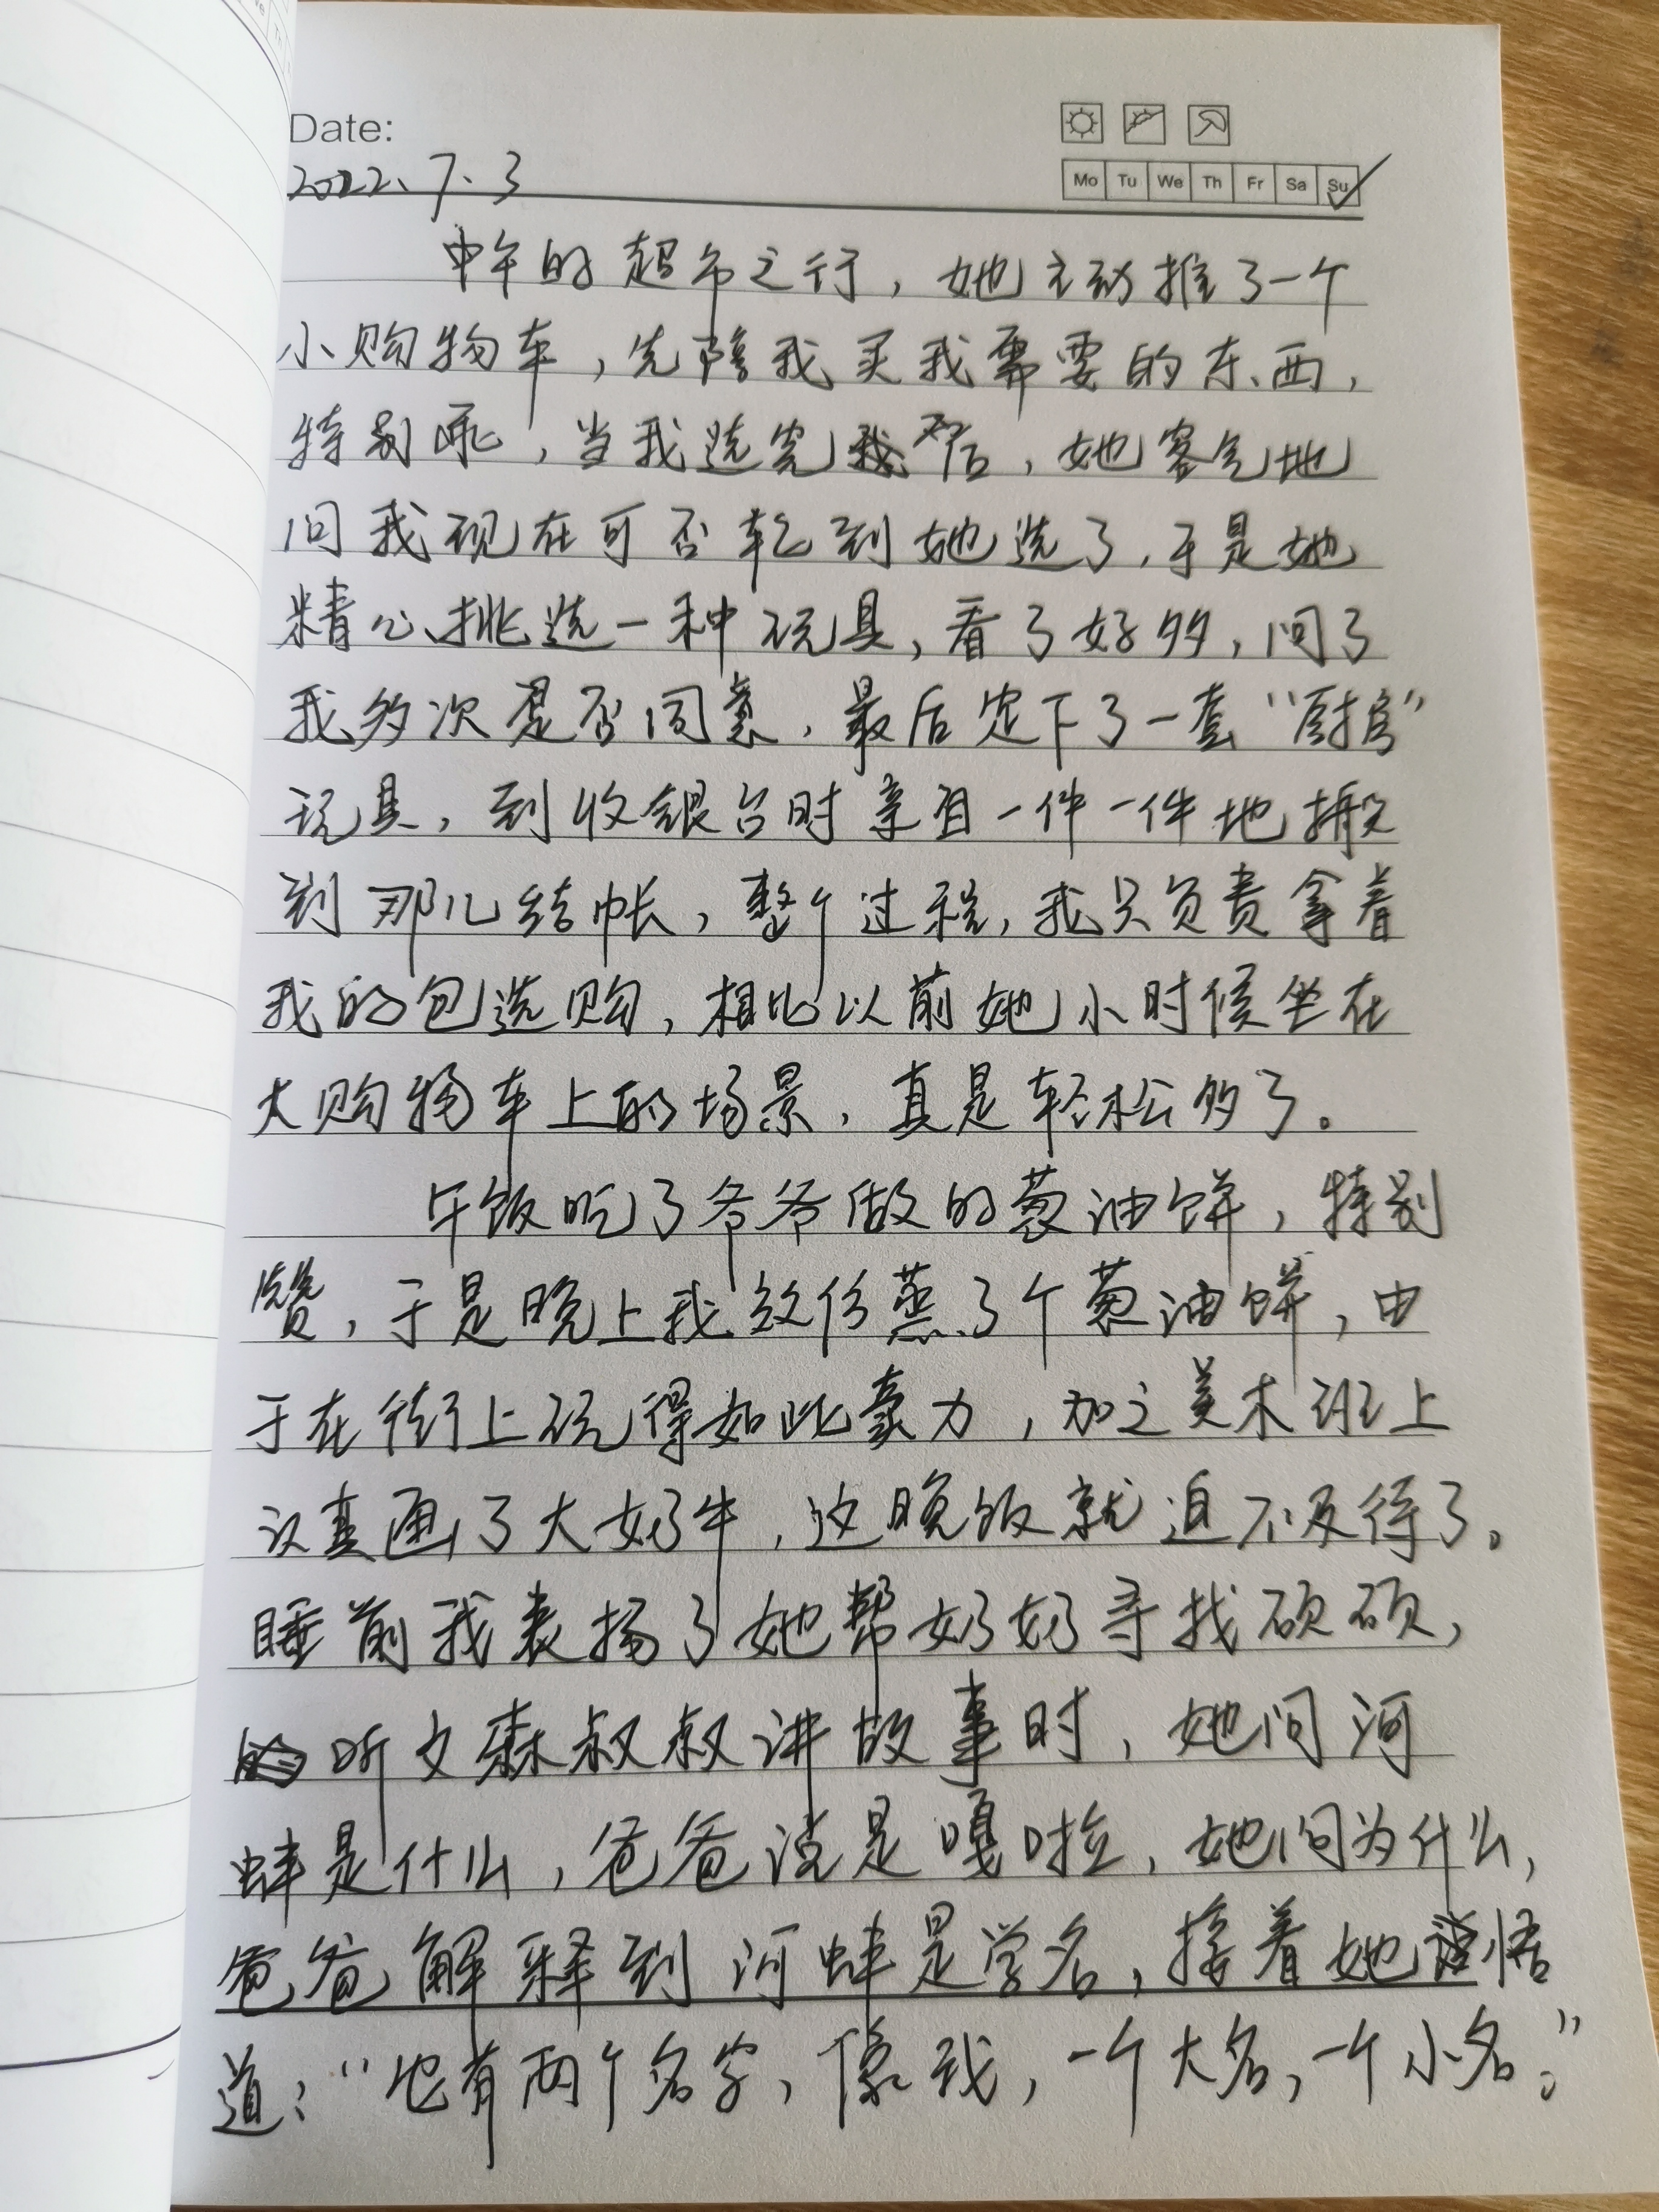 Date:
2022.7.3
Mo Tu We Th Fr Sa Su
中午的超市之行，她主动推了一个
小购物车，先陪我买我需要的东西，
特别乖，当我选完我后，她客气地
问我现在可否轮到她选了，于是她
精心挑选一种玩具，看了好多，问了
我多次是否同意，最后定下了一套“厨房”
玩具，到收银台时亲自一件一件地搬
到那儿结帐，整个过程，我只负责拿着
我的包选购，相比以前她小时候坐在
大购物车上的场景，真是轻松多了。
午饭吃了爷爷做的葱油饼，特别
赞，于是晚上我效仿蒸了个葱油饼，由
于在街上玩得如此豪力，加之美术班上
认真画了大奶牛，这晚饭就迫不及待了。
睡前我表扬了她帮奶奶寻找硕硕，
听文森叔叔讲故事时，她问河
蚌是什么，爸爸说是嘎啦，她问为什么，
爸爸解释到河蚌是学名，接着她悟
道：“也有两个名字，像我，一个大名，一个小名。”